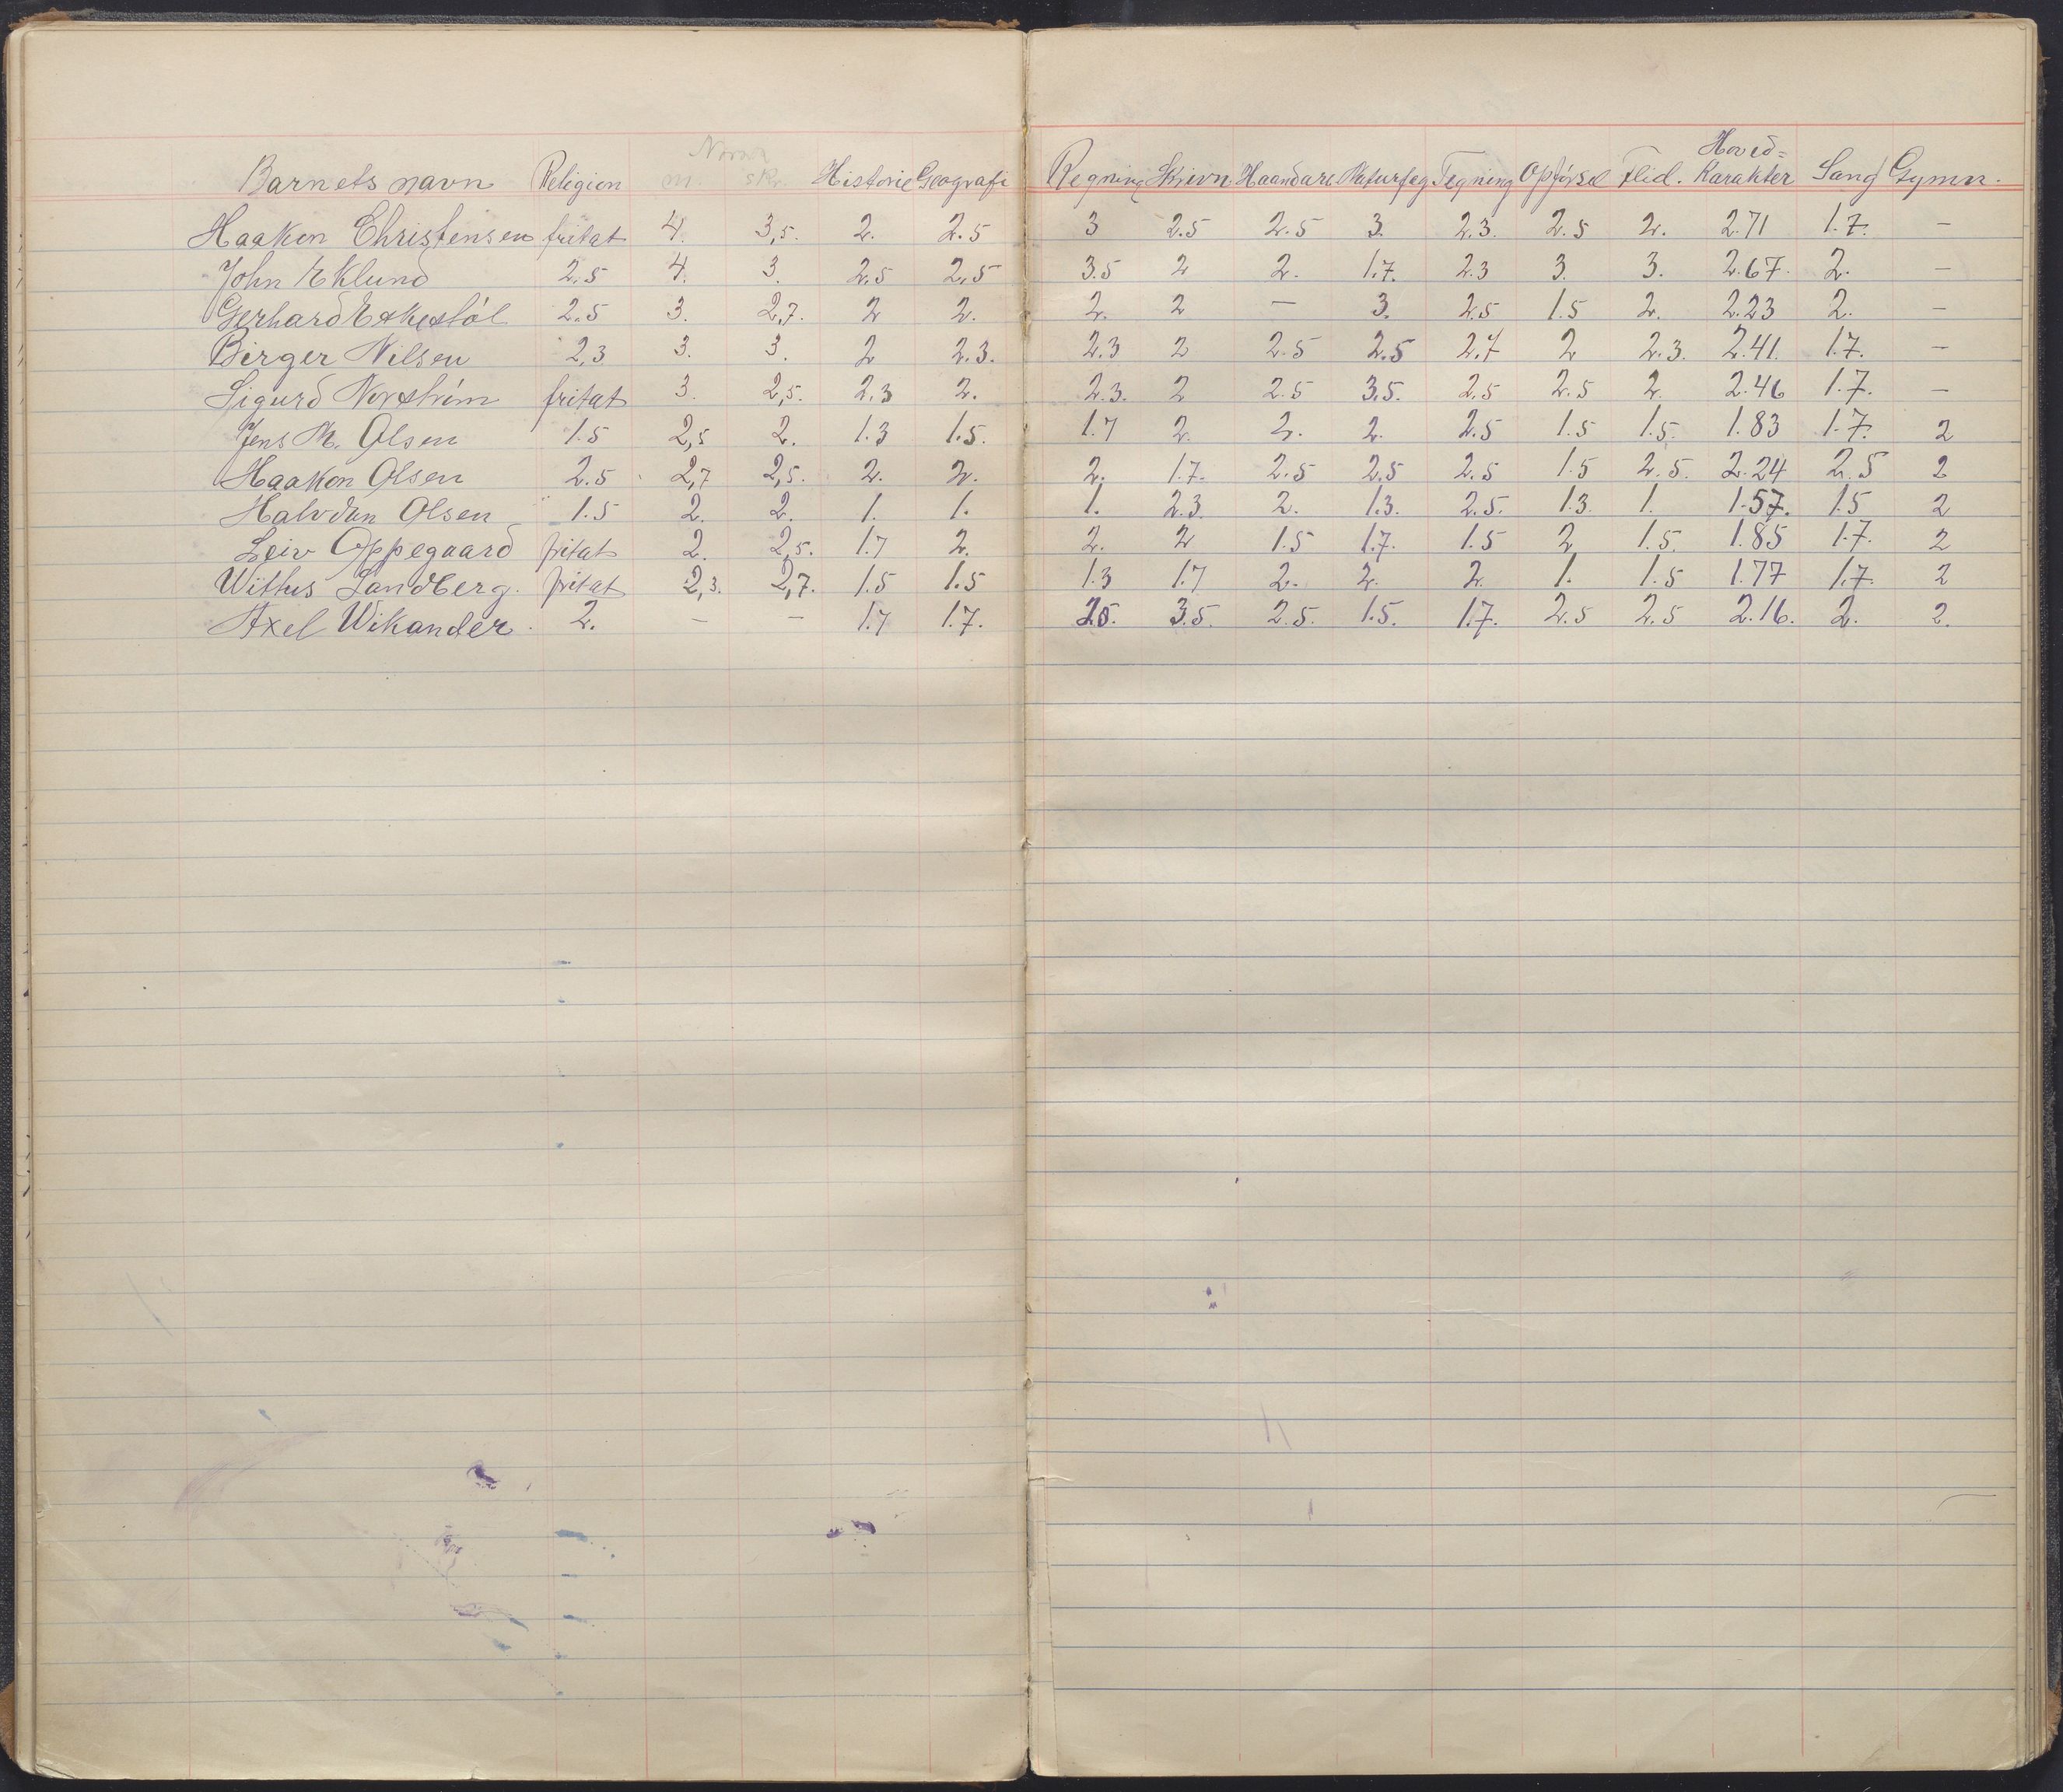 Norsk Hoved=
Barnets navn Religion m. skr. Historie Geografi Regning Skrivn Haandarb. Naturfag Tegning Opførsel Flid. Karakter Sang Gymn.
Haakon Christensen fritat 4. 3,5. 2. 2.5 3 2.5 2.5 3. 2.3. 2.5 2. 2.71 1.7. —
John Eklund 2.5 4. 3. 2.5 2.5 3.5 2 2. 1.7. 2.3 3. 3. 2.67. 2. —
Gerhard 2.5 3. 2,7. 2 2. 2. 2 — 3. 2.5 1.5 2. 2.23 2. —
Birger Nilsen 2,3 3. 3. 2 2.3. 2.3 2 2.5 2.5 2.7 2 2.3. 2.41. 1.7. —
Sigurd Norstrøm fritat 3. 2,5. 2,3 2. 2.3. 2 2.5 3.5. 2.5 2.5 2. 2.46 1.7. —
Jens M. Olsen 1.5 2,5 2. 1.3 1.5. 1.7 2. 2. 2. 2.5 1.5 1.5. 1.83 1.7. 2
Haakon Olsen 2.5 2,7 2,5. 2. 2. 2. 1.7. 2.5 2.5 2.5 1.5 2.5. 2.24 2.5 2
Halvdan Olsen 1.5 2. 2. 1. 1. 1. 2.3. 2. 1.3. 2.5. 1.3. 1. 1.57. 1.5 2
Leiv Oppegaard fritat 2. 2,5. 1.7 2. 2. 2 1.5 1.7. 1.5 2 1.5. 1.85 1.7. 2
Withus Landberg. fritat 2,3. 2,7. 1.5 1.5 1.3 1.7 2. 2. 2. 1. 1.5 1.77 1.7. 2
Axel Wikander. 2. — — 1.7 1.7. 2.5. 3.5. 2.5. 1.5. 1.7. 2.5 2.5 2.16. 2. 2.